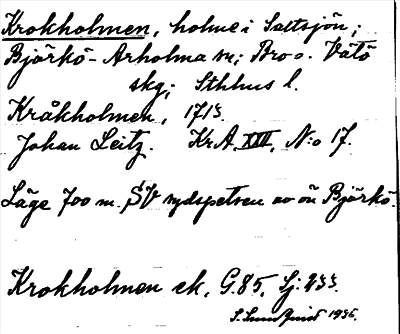 Krokholmen, holme i Saltsjön;
Björkö-Arholma sn; Bro o. Vätö
skg; Sthlms l.
Kråkholmen, 1713.
Johan Leitz. Kr.A. XXII, N:o 17.
Läge 700 m. SV sydspetsen av ön Björkö.
Krokholmen ek. G.85, Sj: 233.
1936.